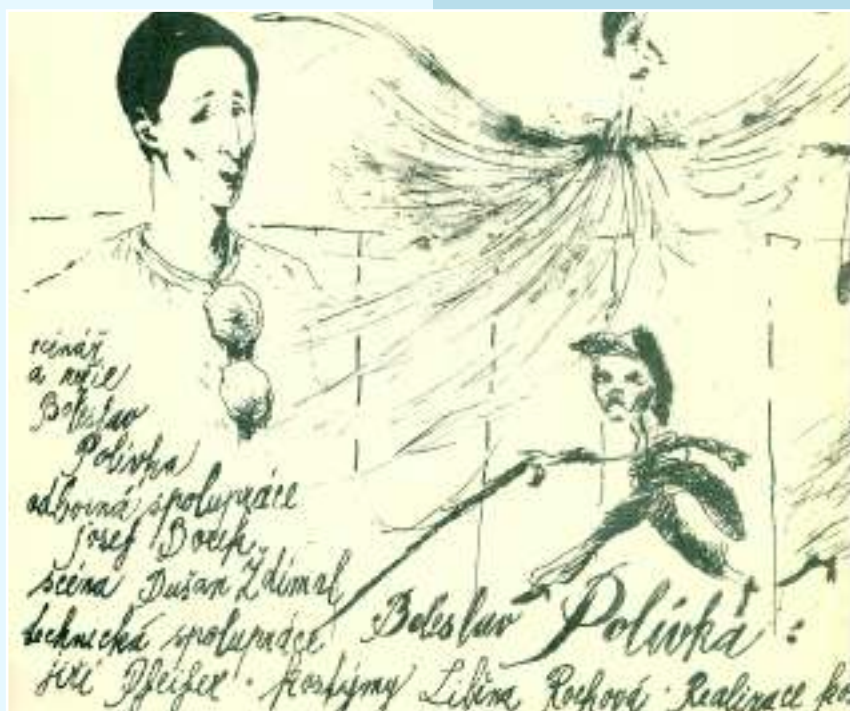 scénář
a režie
Boleslav
Polívka
odborná spolupráce
josef Borek,
scéna Dušan Ždímal
technická spolupráce
jiří Pfeifer · kostýmy Libína Rochová · Realizace
Boleslav Polívka :